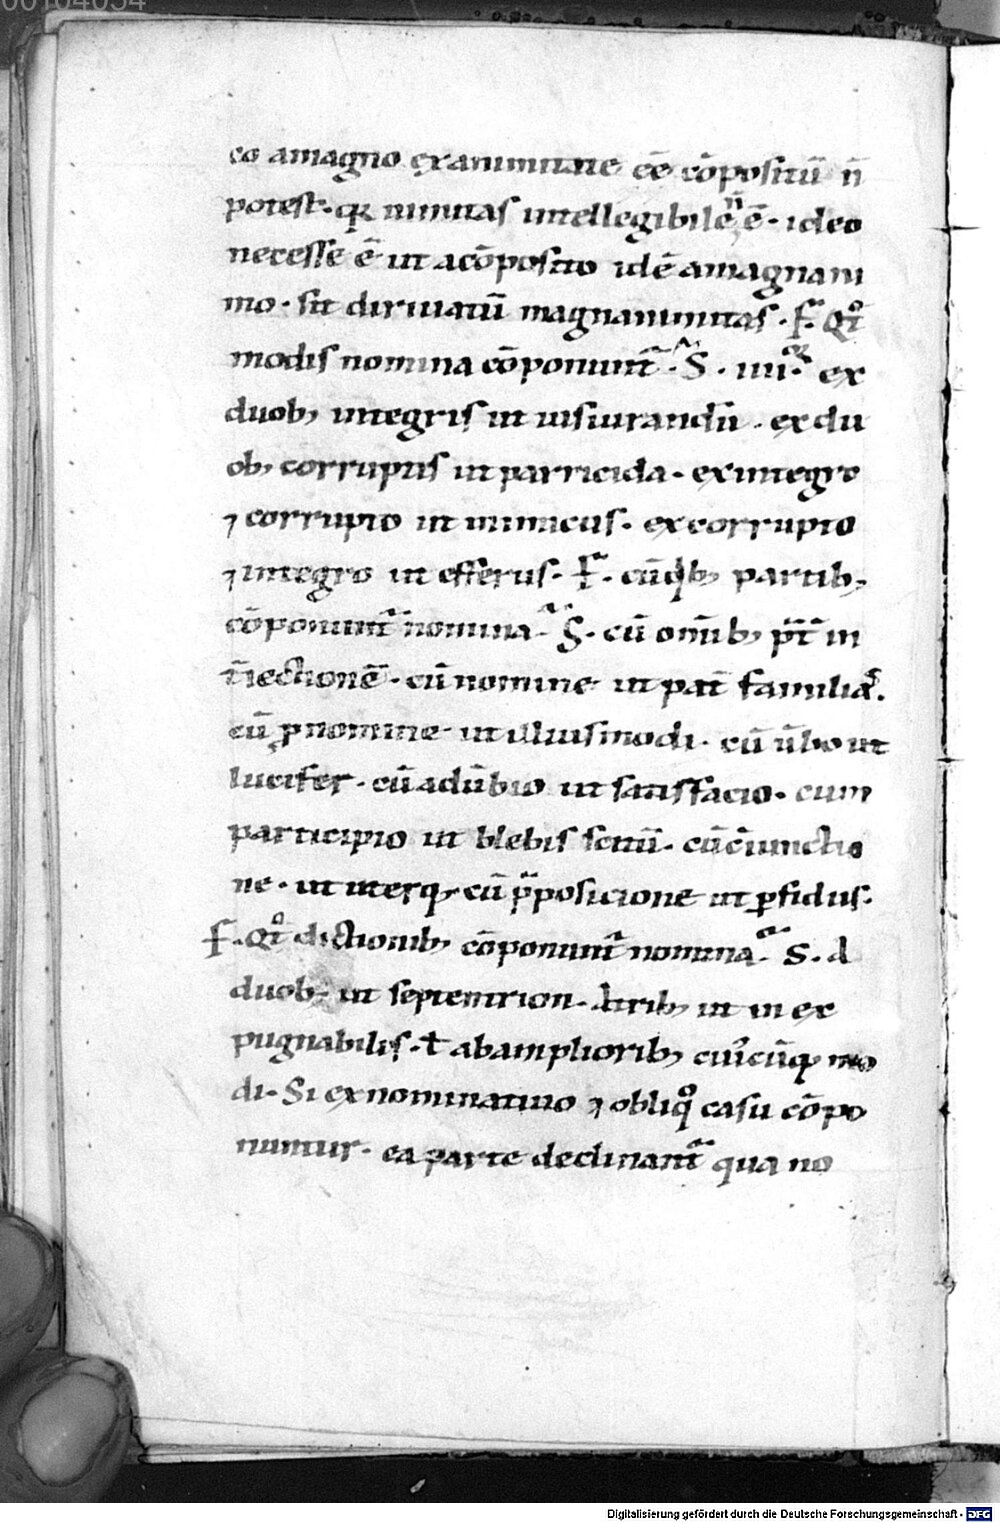 00104054
eo amagno & animitate eē cōpositū n̄
potest. qr nimitas intellegibile n̄ ē. ideo
necesse ē ut acōposito idē amagnani
mo. sit diriuatū magnanimitas. F. Qͦt
modis nomina cōponunt̄. S. iiii. ex
duob; integris ut iusiurandū. ex du
ob; corruptis ut parricida. ex integro
⁊ corrupto ut inimicus. ex corrupto
⁊ integro ut efferus. F. cū qib; partib;
cōponunt̄ nomina. S. cū omīb; p̄t in
t̄iectionē. cū nomine ut pat̄ familias.
cū ꝓnomine ut illiusmodi. cū ūbo ut
lucifer. cū adūbio ut satisfacio. cum
participio ut blebis scitū. cū c̄iunctio
ne. ut uterq; cū p̄posicione ut ꝑfidus.
F. Qͦt dictionib; cōponunt̄ nomina. S. A
duob; ut septemtrion. A trib; ut in ex
pugnabilis. ł ab amplioribꝫ cui᷒cūq; mo
di. Si ex nominatiuo ⁊ obliqͦ casu cōpo
nuntur. ea parte declinant̄ qua no
Digitalisierung gefördert durch die Deutsche Forschungsgemeinschaft - DFG